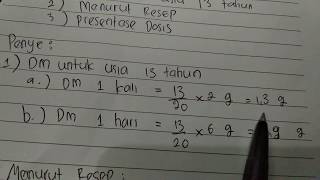 usia 13 tahun
2) Menurut Resep
3) Presentase Dosis
Penye :
1) DM untuk usia 13 tahun
a.) DM 1 kali = 13/20 x 2 g = 1,3 g
b.) DM 1 hari = 13/20 x 6 g = g
Menurut Resep :